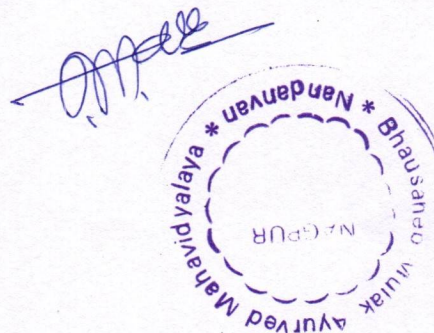 Bhausaheb Mulak Ayurved Mahavidyalaya * Nandanvan *
NAGPUR